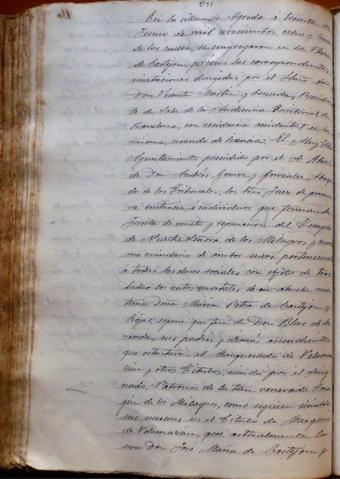 En la villa de Agreda á treinta de
Junio de mil ochocientos ochenta y
de las nueve, se congregaron en la Plaza
de Castejon, previas las correspondientes
invitaciones dirigidas por el Ilmo. Sor.
Don Vicente Martin y Presiden
te de Sala de la Audiencia Territorial de
Barcelona, con residencia accidental en la
misma, usando de licencia: El Muy Iltre
Ayuntamiento presidido por el Sr. Alcal
de Don Andrés Gomez y Gonzalez, Aboga
do de los Tribunales; los Sres. Juez de prime
ra instancia é individuos que forman la
Junta de ornato y reparacion del Templo
de Nuestra Señora de los Milagros y nume
roso vecindario de ambos sexos, perteneciente
á todas las clases sociales con objeto de tras
ladar los restos mortales de su abuela ma
terna Dña Maria Petra de Castejon y
esposa que fué de Don Blas de
sus padres y demás ascendientes
que ostentaron el Marquesado de Velamazan
y otros Títulos, siendo por el desig
nado, Patronos de la tan venerada Imá
gen de los Milagros, como siguen siéndo
me nuestros en el Título de Marqueses
de Velamazan, que actualmente lo
usa Don José Maria de Castejon y